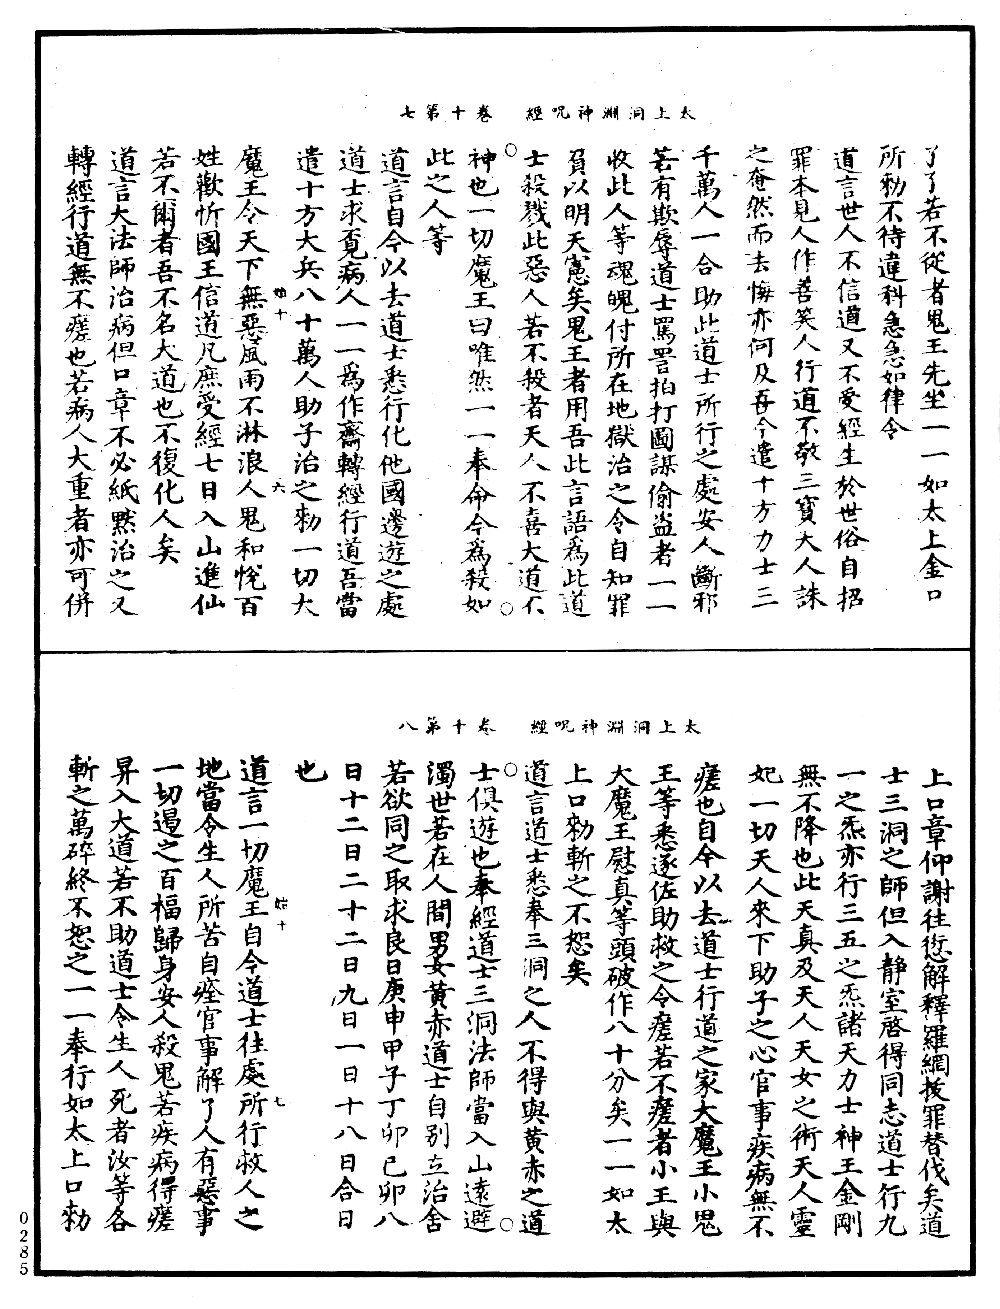 太上洞淵神呪經　卷十第七
了了若不從者鬼王先坐一一如太上金口
所勑不待違科急急如律令
道言世人不信道又不受經生於世俗自招
罪本見人作善笑人行道不敬三寶大人誅
之奄然而去悔亦何及吾今遣十方力士三
千萬人一合助此道士所行之處安人斷邪
若有欺辱道士罵詈拍打圖謀偷盜者一一
收此人等魂魄付所在地獄治之令自知罪
負以明天憲矣鬼王者用吾此言語為此道
士殺戮此惡人若不殺者天人不喜大道不
神也一切魔王曰唯然一一奉命今為殺如
此之人等
道言自今以去道士悉行化他國邊遊之處
道士求覓病人一一為作齋轉經行道吾當
遣十方大兵八十萬人助子治之勑一切大
魔王令天下無惡風雨不淋浪人鬼和悅百
始十　六
姓歡忻國王信道凡庶受經七日入山進仙
若不爾者吾不名大道也不復化人矣
道言大法師治病但口章不必紙默治之又
轉經行道無不瘥也若病人大重者亦可併
太上洞淵神呪經　卷十第八
上口章仰謝往愆解釋羅網拔罪替伐矣道
士三洞之師但入靜室啓得同志道士行九
一之炁亦行三五之炁諸天力士神王金剛
無不降也此天真及天人天女之術天人靈
妃一切天人來下助子之心官事疾病無不
瘥也自今以去道士行道之家大魔王小鬼
王等悉遂佐助救之令瘥若不瘥者小王與
大魔王慰真等頭破作八十分矣一一如太
上口勑斬之不恕矣
道言道士悉奉三洞之人不得與黃赤之道
士俱遊也奉經道士三洞法師當入山遠避
濁世若在人間男女黃赤道士自別立治舍
若欲同之取求良日庚申甲子丁卯己卯八
日十二日二十二日九日一日十八日合日
也
道言一切魔王自今道士往處所行救人之
始十　七
地當令生人所苦自痊官事解了人有惡事
一切遏之百福歸身安人殺鬼若疾病得瘥
昇入大道若不助道士令生人死者汝等各
斬之萬碎終不恕之一一奉行如太上口勑
0285